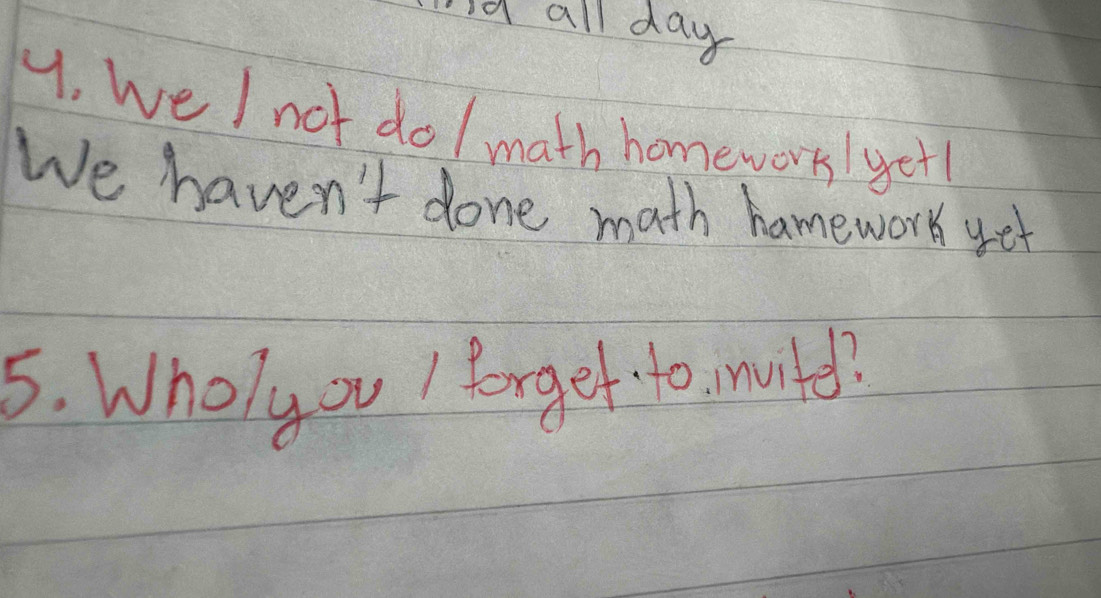 all day
4. We / not do / math homework / yet /
We haven't done math hamework yet
5. Who / you / forget to invite?